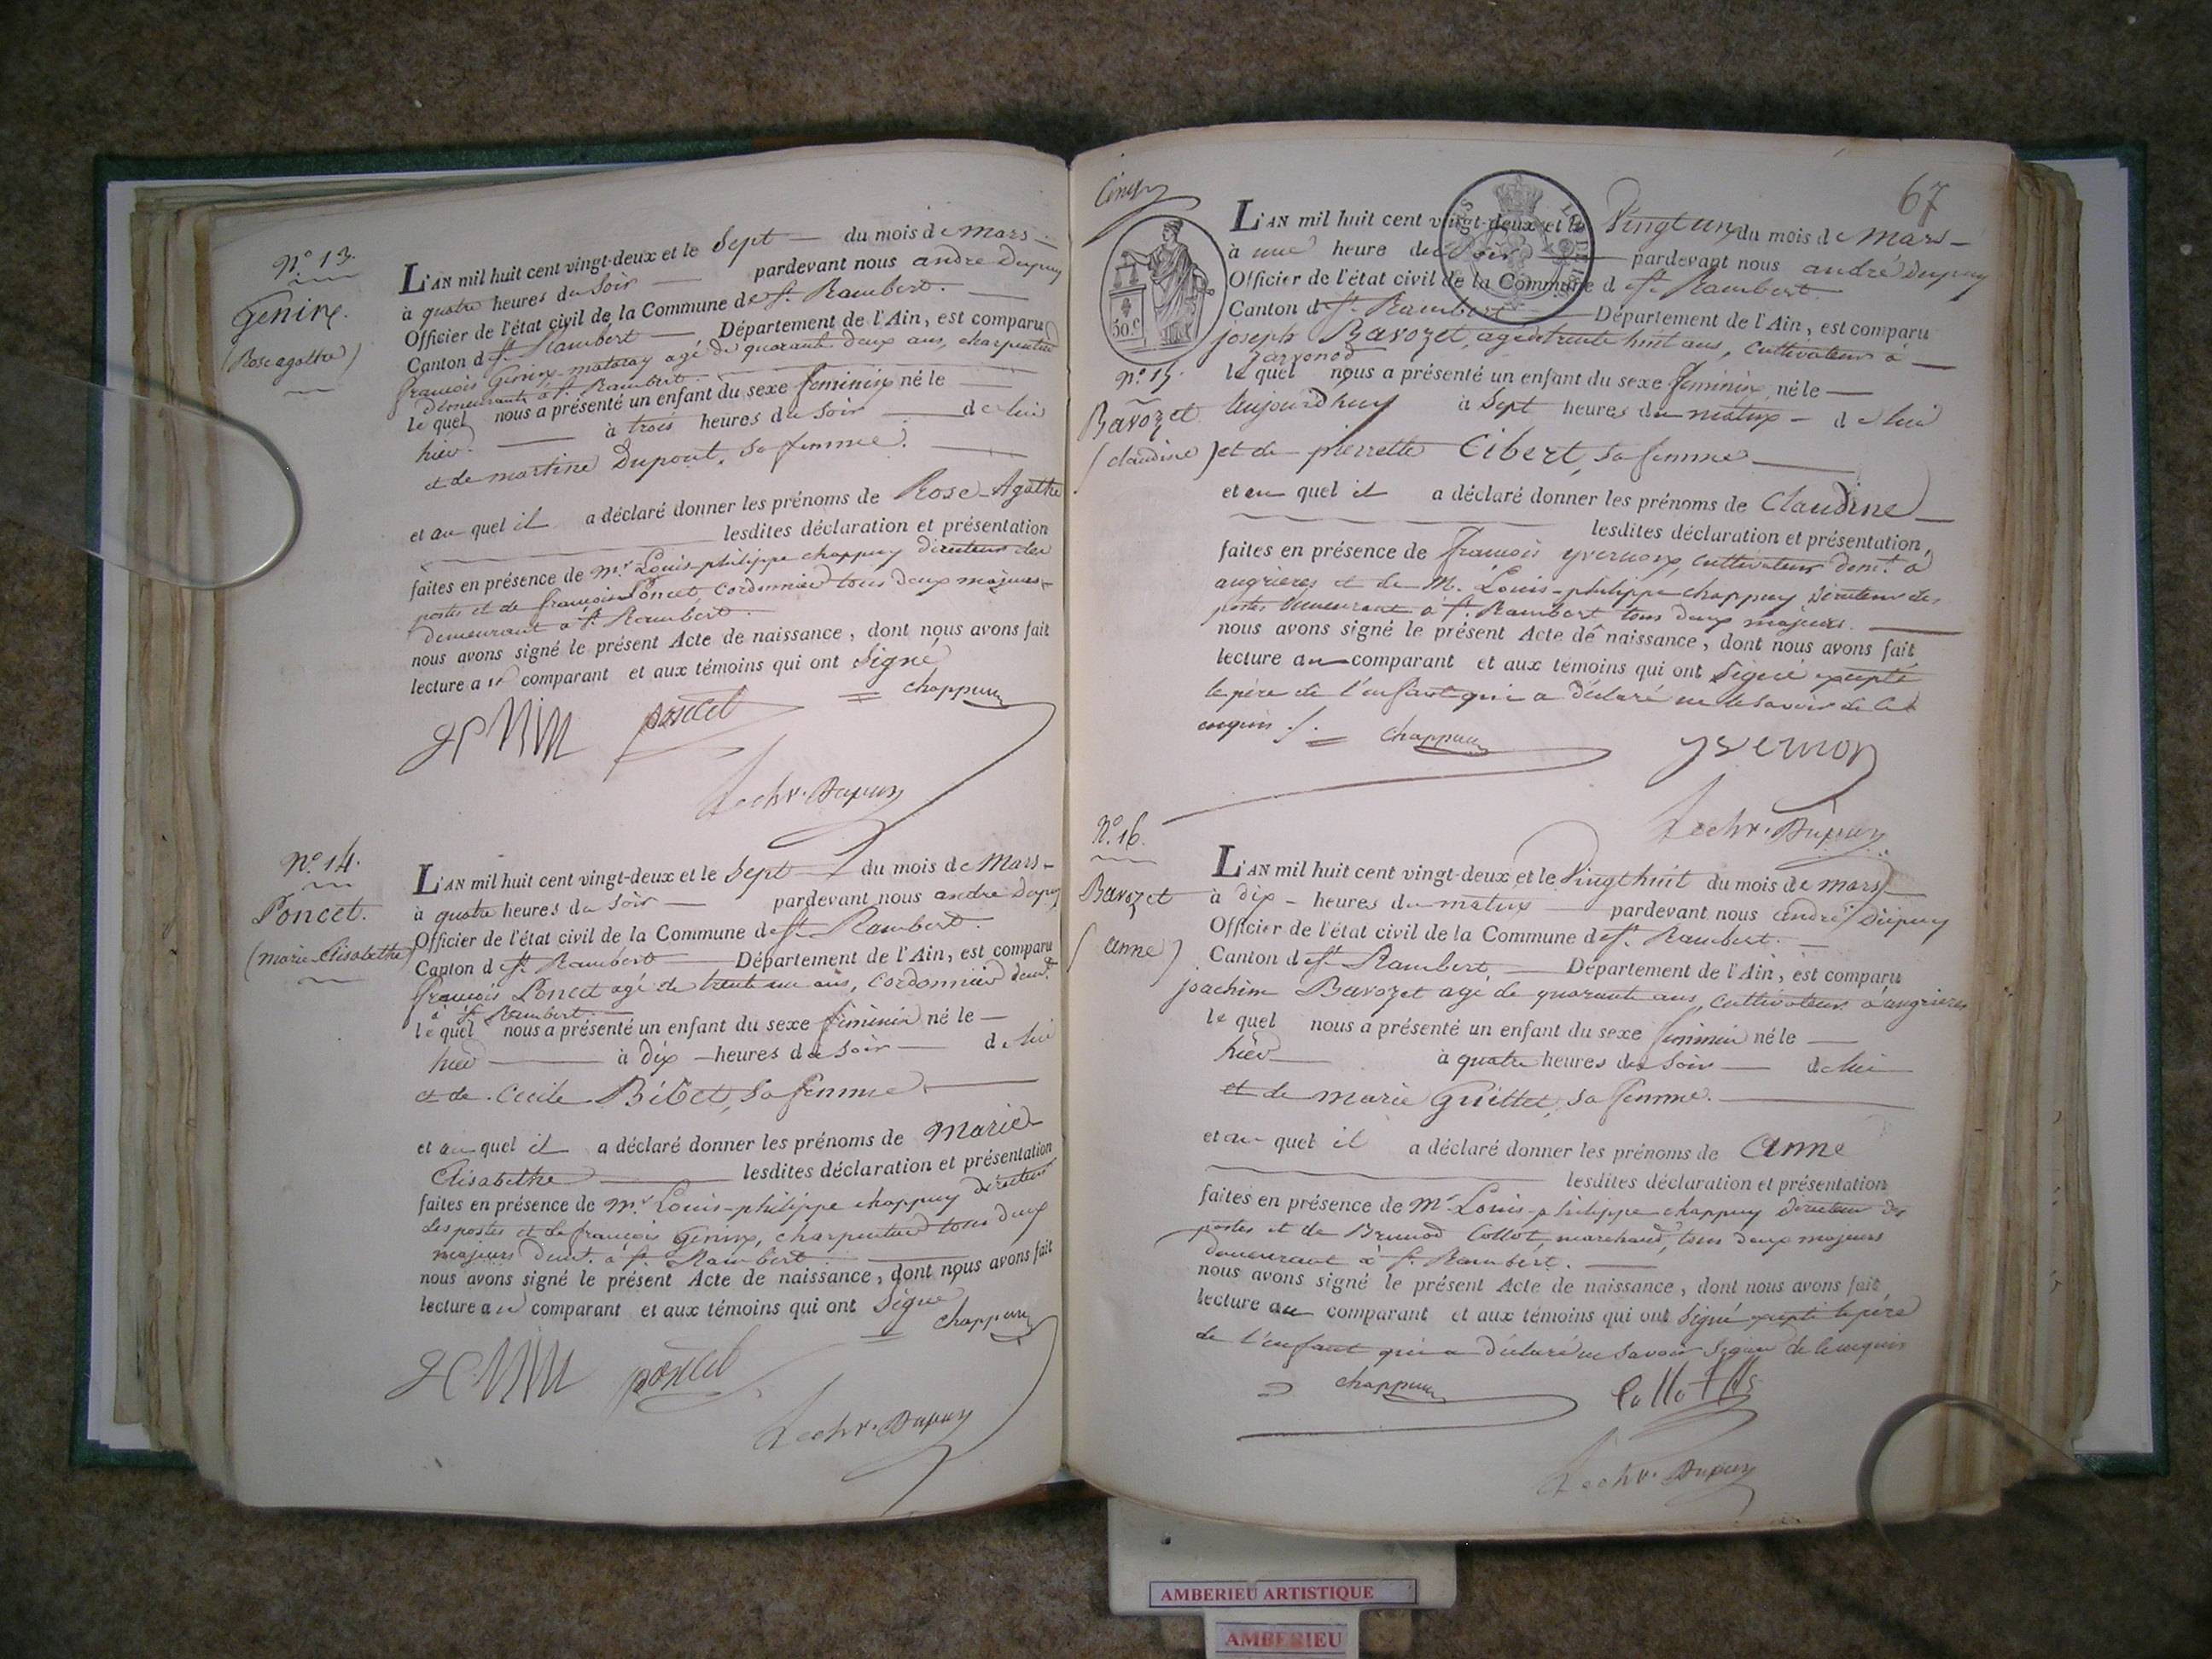 N.º 13.
Genin.
(Rose agathe)
L'AN mil huit cent vingt-deux et le Sept du mois de Mars
à quatre heures du Soir pardevant nous andré Dupuy
Officier de l'état civil de la Commune de St. Rambert.
Canton de St. Rambert Département de l'Ain, est comparu
françois Genin agé de quarante deux ans, charpentier
demeurant à St. Rambert.
le quel nous a présenté un enfant du sexe feminin né le
hier à trois heures du Soir de lui
et de martine Dupont, sa femme.
et au quel il a déclaré donner les prénoms de Rose-Agathe
lesdites déclaration et présentation
faites en présence de Mr. Louis-philippe chappuy directeur des
postes et de françois Poncet, Cordonnier tous deux majeurs
demeurant à St. Rambert.
nous avons signé le présent Acte de naissance, dont nous avons fait
lecture au comparant et aux témoins qui ont Signé
chappuy
poncet
Dupuy
N.º 14.
Poncet.
(marie-Elisabethe)
L'AN mil huit cent vingt-deux et le Sept du mois de Mars
à quatre heures du Soir pardevant nous andré Dupuy
Officier de l'état civil de la Commune de St. Rambert.
Canton de St. Rambert Département de l'Ain, est comparu
françois Poncet agé de trente un ans, Cordonnier demt.
à St. Rambert.
le quel nous a présenté un enfant du sexe féminin né le
hier à dix heures du Soir de lui
et de Cécile Bibet, sa femme
et au quel il a déclaré donner les prénoms de Marie
Elisabethe lesdites déclaration et présentation
faites en présence de Mr. Louis-philippe chappuy directeur
des postes et de françois Genin, charpentier tous deux
majeurs demt. à St. Rambert.
nous avons signé le présent Acte de naissance, dont nous avons fait
lecture au comparant et aux témoins qui ont Signé
chappuy
poncet
Dupuy
67
50 c
L'AN mil huit cent vingt-deux et le Vingt un du mois de Mars
à une heure du Soir pardevant nous andré Dupuy
Officier de l'état civil de la Commune de St. Rambert
Canton de St. Rambert Département de l'Ain, est comparu
joseph Bavozet, agé de trente huit ans, cultivateur à
N.º 15.
Bavozet
(claudine)
le quel nous a présenté un enfant du sexe féminin né le
aujourd'huy à Sept heures du matin de lui
et de pierrette Cibert, sa femme
et au quel il a déclaré donner les prénoms de Claudine
lesdites déclaration et présentation,
faites en présence de françois yvernon, cultivateur demt. à
angrieres et de M. Louis-philippe chappuy Directeur des
postes demeurant à St. Rambert tous deux majeurs.
nous avons signé le présent Acte de naissance, dont nous avons fait
lecture au comparant et aux témoins qui ont Signé excepté
le père de l'enfant qui a déclaré ne le savoir de ce
enquis
chappuy
yvernon
Dupuy
N.º 16.
Bavozet
(anne)
L'AN mil huit cent vingt-deux et le Vingt huit du mois de mars
à dix heures du matin pardevant nous andré Dupuy
Officier de l'état civil de la Commune de St. Rambert.
Canton de St. Rambert, Département de l'Ain, est comparu
joachim Bavozet agé de quarante ans, cultivateur à angrieres
le quel nous a présenté un enfant du sexe féminin né le
hier à quatre heures du Soir de lui
et de marie Guittet, sa femme.
et au quel il a déclaré donner les prénoms de Anne
lesdites déclaration et présentation
faites en présence de Mr. Louis-philippe chappuy Directeur des
postes et de Brunod Collot, marchand, tous deux majeurs
demeurant à St. Rambert.
nous avons signé le présent Acte de naissance, dont nous avons fait
lecture au comparant et aux témoins qui ont Signé excepté le père
de l'enfant qui a déclaré ne savoir Signer de ce enquis
chappuy
Collot fils
Dupuy
AMBERIEU ARTISTIQUE
AMBERIEU